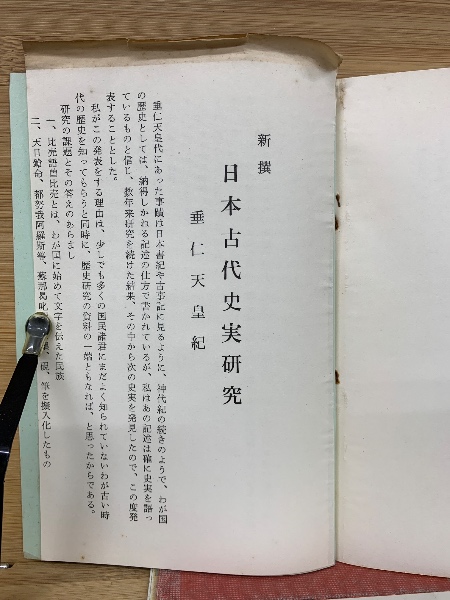 新撰
日本古代史実研究
垂仁天皇紀
垂仁天皇代にあった事蹟は日本書紀や古事記に見るように、神代紀の続きのようで、わが国
の歴史としては、納得しかねる記述の仕方で書かれているが、私はあの記述は確に史実を語っ
ているものと信じ、数年来研究を続けた結果、その中から次の史実を発見したので、この度発
表することとした。
私がこの発表をする理由は、少しでも多くの国民諸君にまだよく知られていないわが古い時
代の歴史を知ってもらうと同時に、歴史研究の資料の一端ともなれば、と思ったからである。
研究の課題とその答えのあらまし
一、比売語曽比売とは、わが国に始めて文字を伝えた民族
二、天日鎗命、都努我阿羅斯等、蘇那曷叱 硯、筆を擬人化したもの